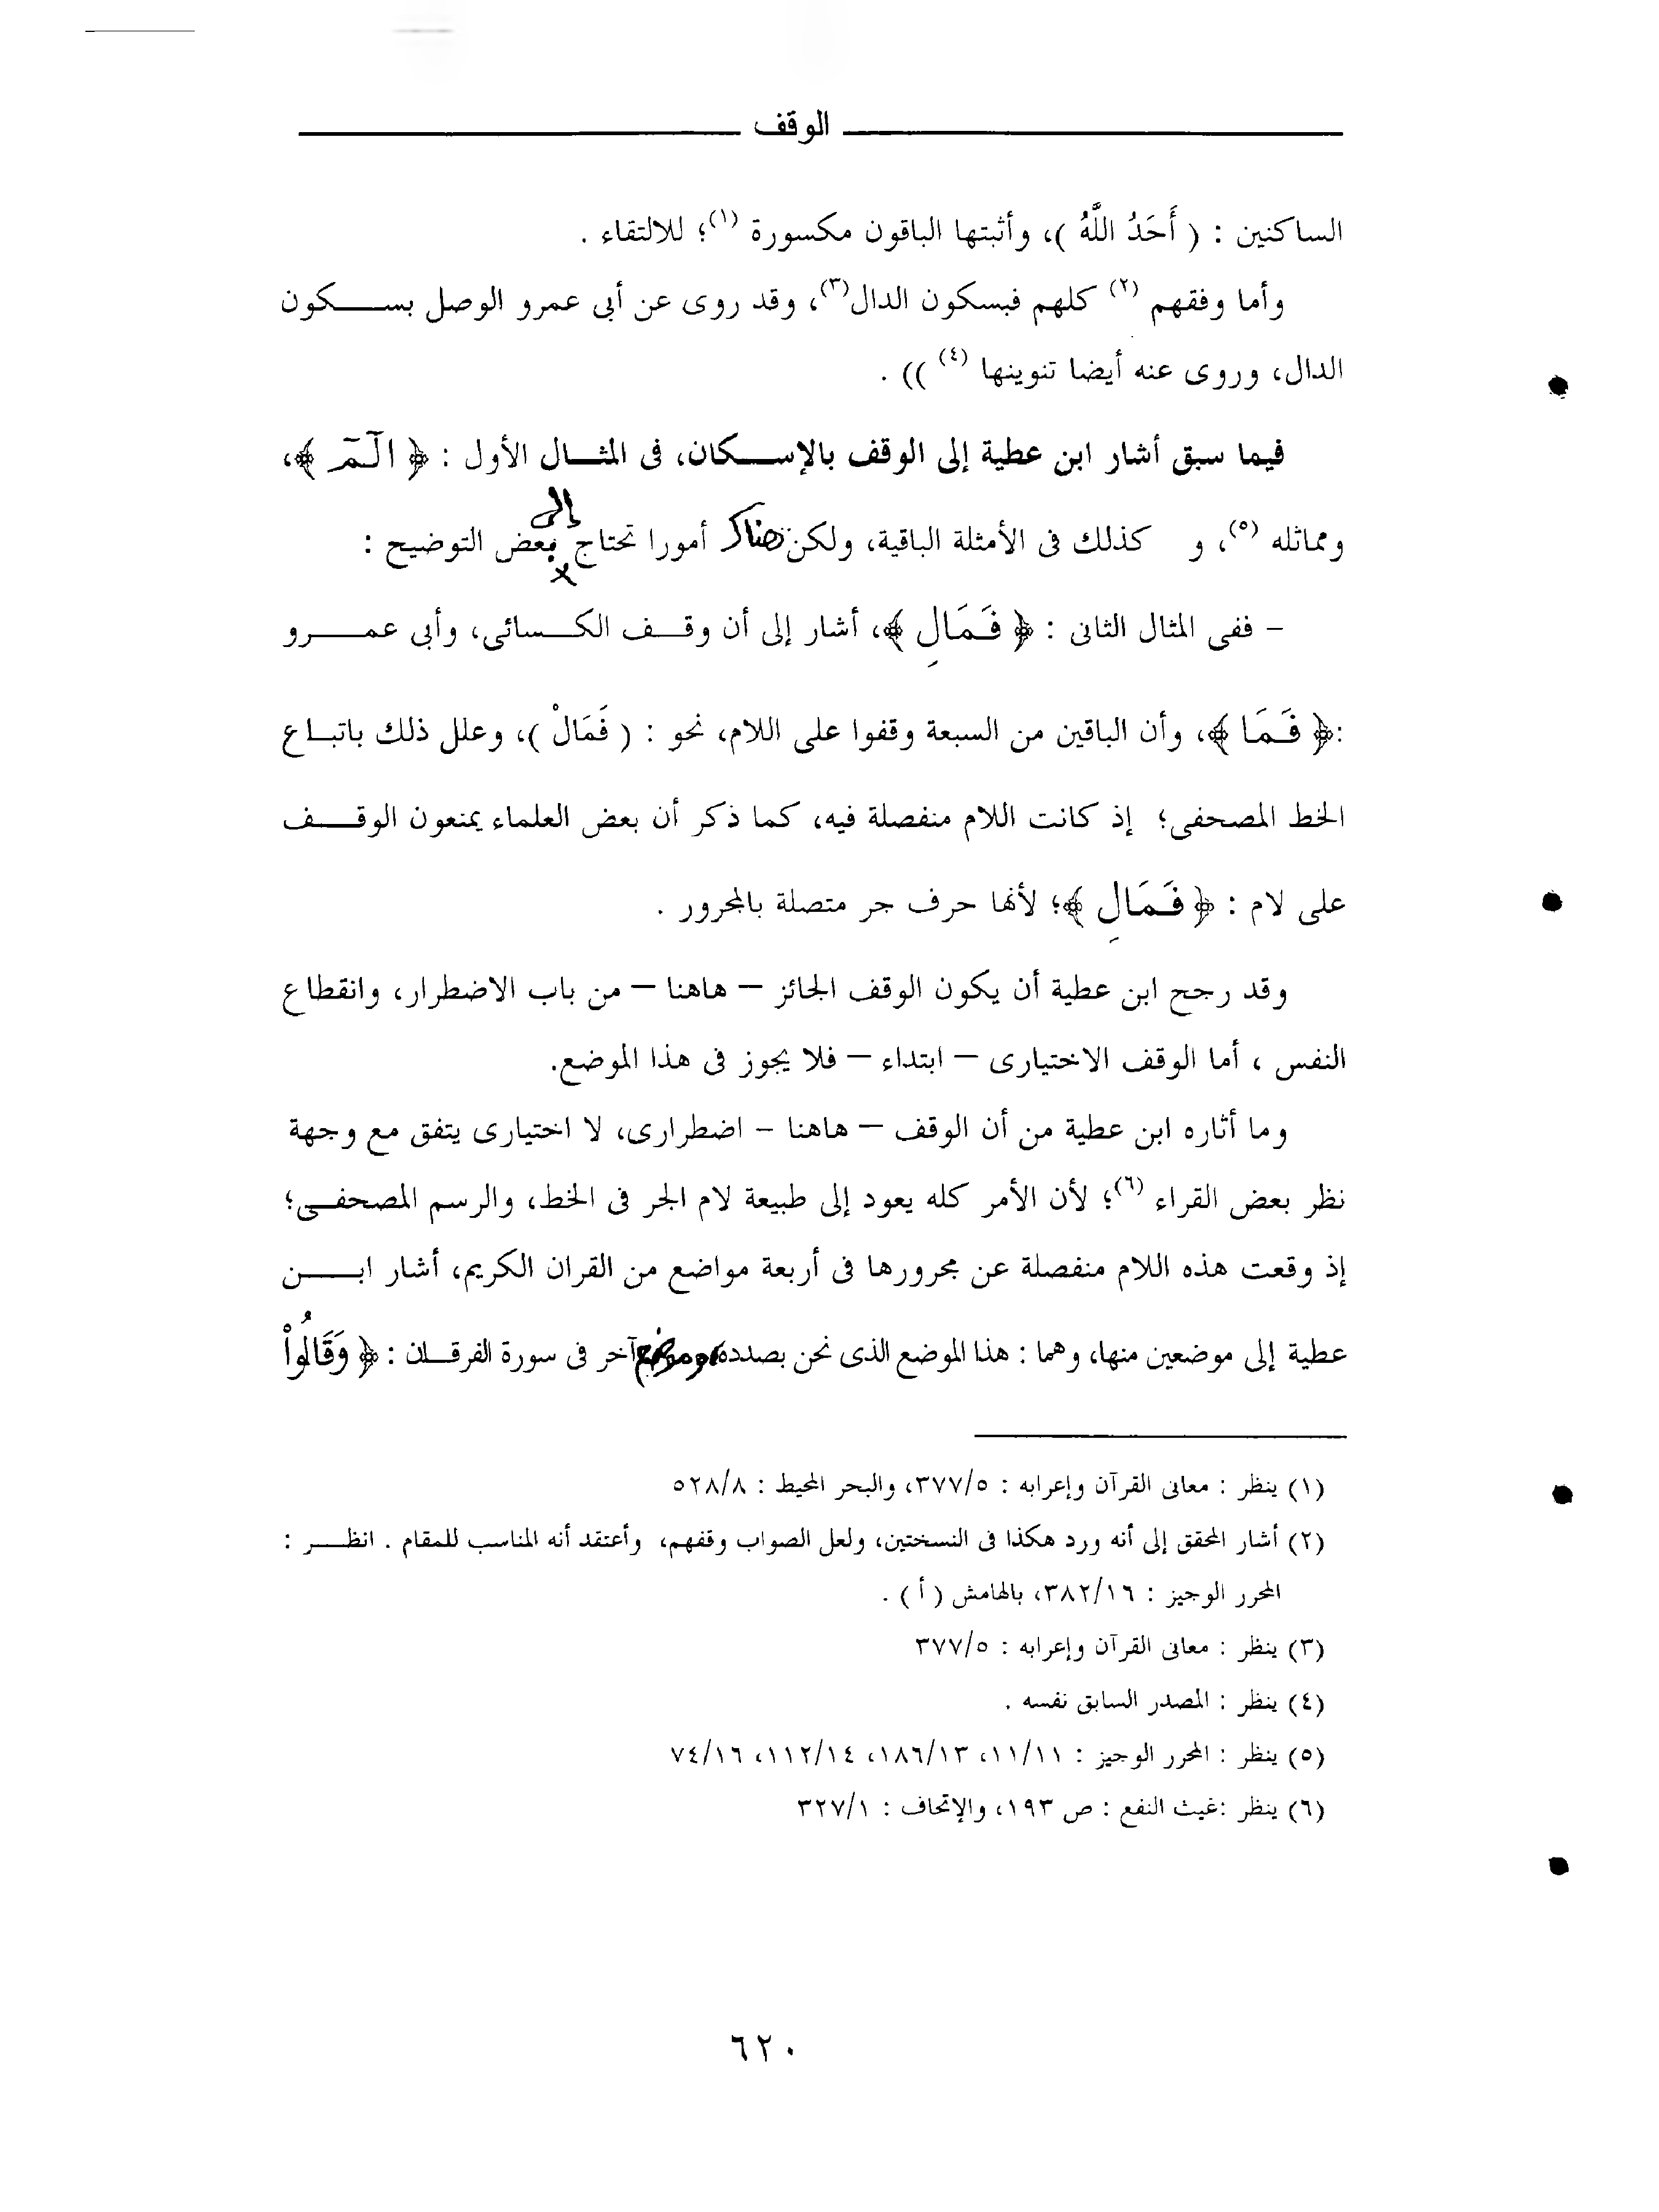 الوقف
الساكنين : ( أَحَدُ اللَّهُ )، وأثبتها الباقون مكسورة (١)؛ للالتقاء .
وأما وفقهم (٢) كلهم فبسكون الدال(٣)، وقد روى عن أبى عمرو الوصل بسكون
الدال، وروى عنه أيضا تنوينها (٤) )) .
فيما سبق أشار ابن عطية إلى الوقف بالإسكان، فى المثال الأول : ﴿ الٓمٓ ﴾،
ومماثله (٥)، و كذلك فى الأمثلة الباقية، ولكن هناك أمورا تحتاج إلى بعض التوضيح :
– ففى المثال الثانى : ﴿ فَمَالِ ﴾، أشار إلى أن وقف الكسائى، وأبى عمرو
:﴿ فَمَا ﴾، وأن الباقين من السبعة وقفوا على اللام، نحو : ( فَمَالْ )، وعلل ذلك باتباع
الخط المصحفى؛ إذ كانت اللام منفصلة فيه، كما ذكر أن بعض العلماء يمنعون الوقف
على لام : ﴿ فَمَالِ ﴾؛ لأنها حرف جر متصلة بالمجرور .
وقد رجح ابن عطية أن يكون الوقف الجائز – هاهنا – من باب الاضطرار، وانقطاع
النفس ، أما الوقف الاختيارى – ابتداء – فلا يجوز فى هذا الموضع.
وما أثاره ابن عطية من أن الوقف – هاهنا – اضطرارى، لا اختيارى يتفق مع وجهة
نظر بعض القراء (٦)؛ لأن الأمر كله يعود إلى طبيعة لام الجر فى الخط، والرسم المصحفى؛
إذ وقعت هذه اللام منفصلة عن مجرورها فى أربعة مواضع من القران الكريم، أشار ابن
عطية إلى موضعين منها، وهما : هذا الموضع الذى نحن بصدده، وموضع آخر فى سورة الفرقان : ﴿ وَقَالُواْ
(١) ينظر : معانى القرآن وإعرابه : ٣٧٧/٥، والبحر المحيط : ٥٢٨/٨
(٢) أشار المحقق إلى أنه ورد هكذا فى النسختين، ولعل الصواب وقفهم، وأعتقد أنه المناسب للمقام . انظر :
المحرر الوجيز : ٣٨٢/١٦، بالهامش ( أ ) .
(٣) ينظر : معانى القرآن وإعرابه : ٣٧٧/٥
(٤) ينظر : المصدر السابق نفسه .
(٥) ينظر : المحرر الوجيز : ١١/١١، ١٨٦/١٣، ١١٢/١٤، ٧٤/١٦
(٦) ينظر :غيث النفع : ص ١٩٣، والإتحاف : ٣٢٧/١
٦٢٠